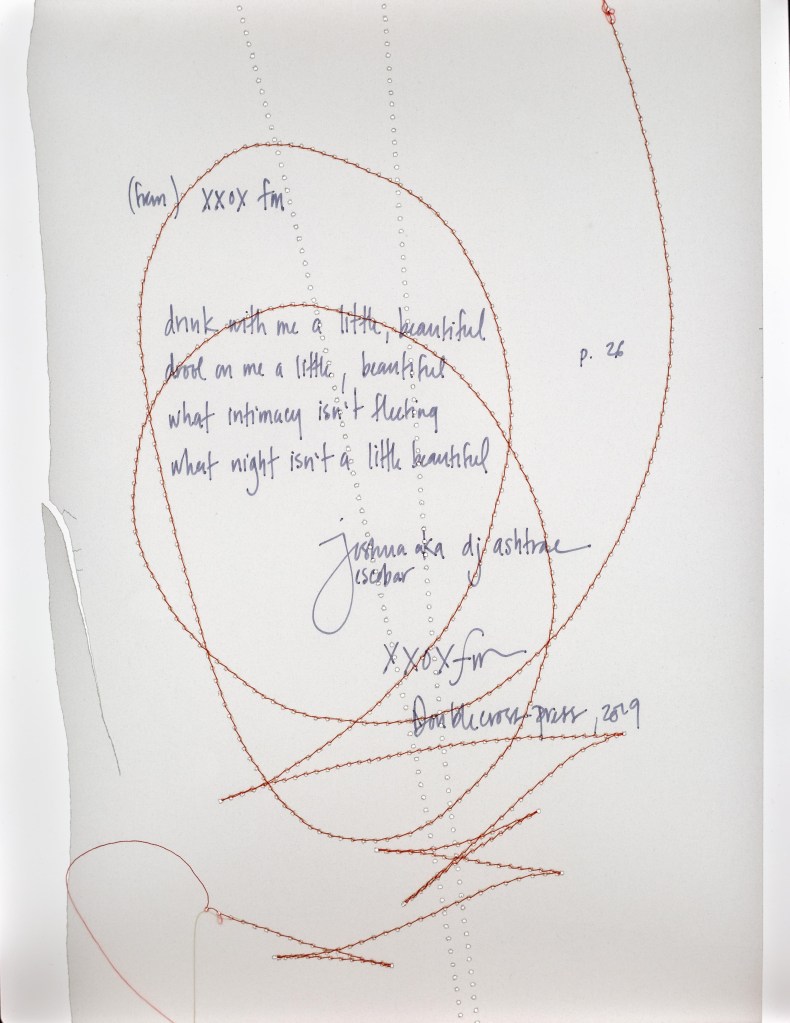 (from) xxox fm
drink with me a little, beautiful
drool on me a little, beautiful
p. 26
what intimacy isn't fleeting
what night isn't a little beautiful
joshua aka dj ashtrae
escobar
XXOXfm
Doublecross press, 2019